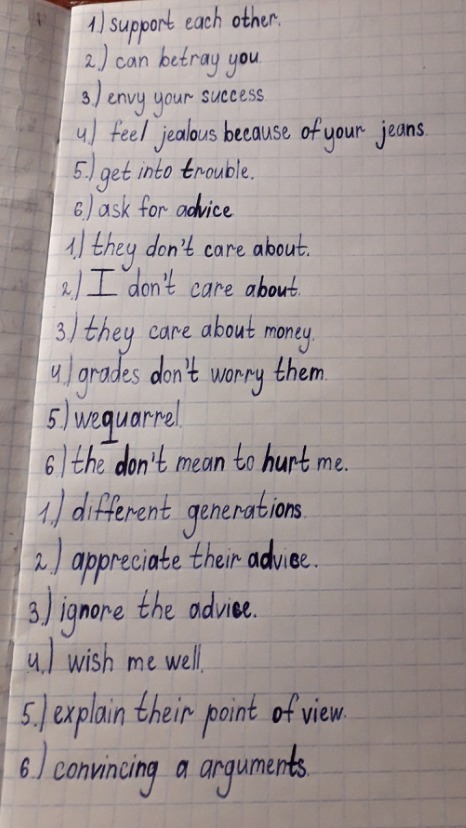 1.) support each other.
2.) can betray you.
3.) envy your success.
4.) feel jealous because of your jeans.
5.) get into trouble.
6.) ask for advice
1.) they don't care about.
2.) I don't care about.
3.) they care about money.
4.) grades don't worry them.
5.) wequarrel.
6.) the don't mean to hurt me.
1.) different generations.
2.) appreciate their advice.
3.) ignore the advice.
4.) wish me well.
5.) explain their point of view.
6.) convincing a arguments.